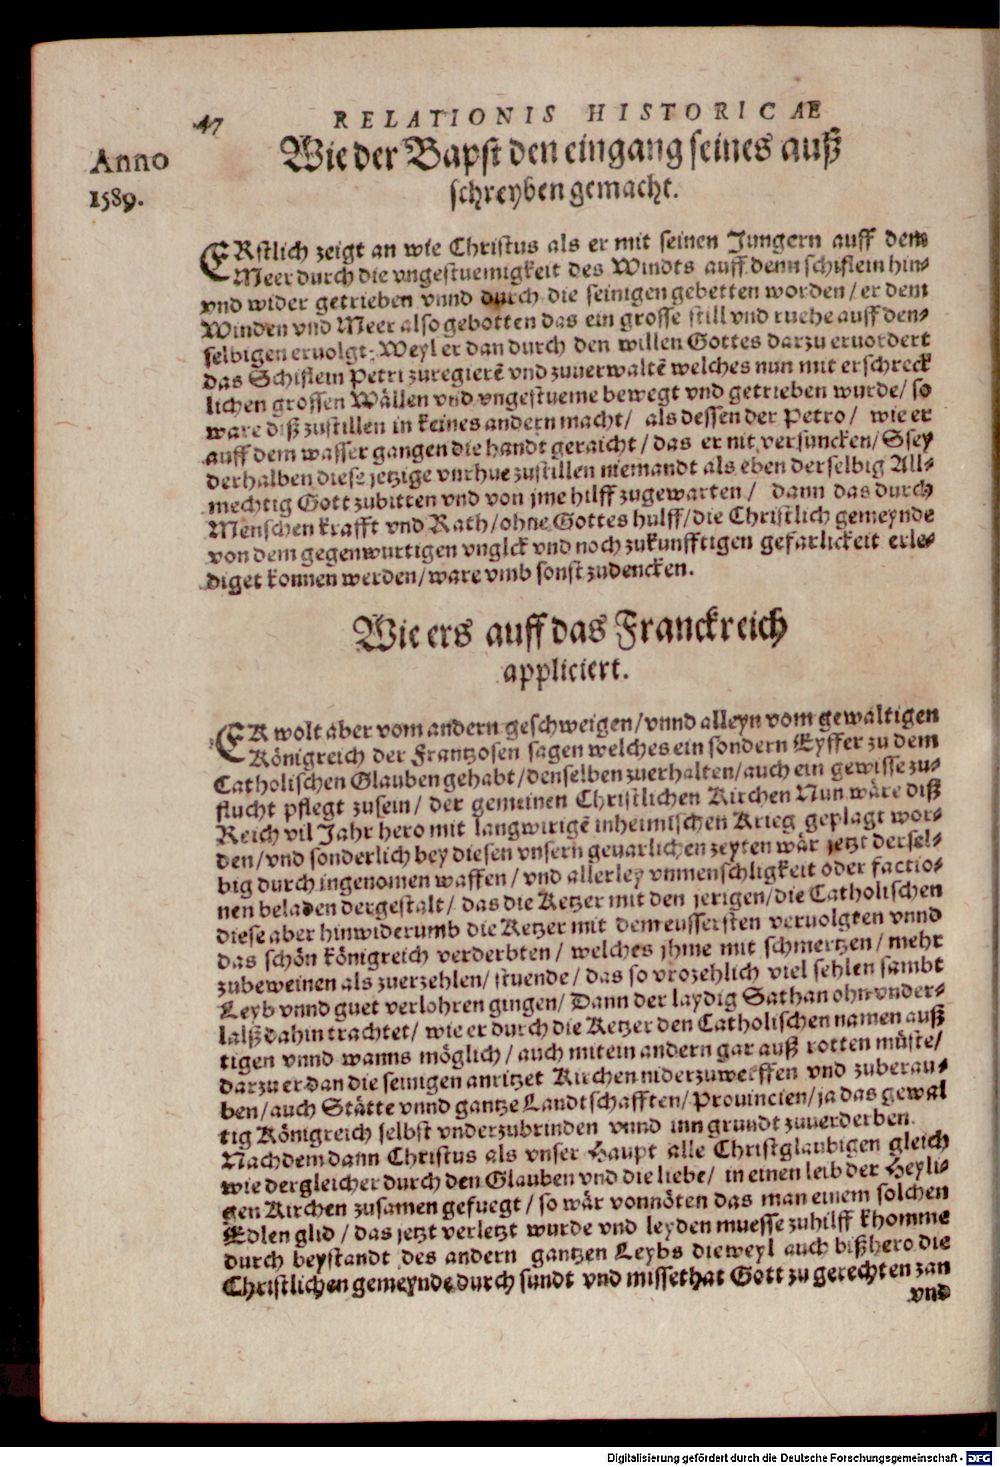 47
RELATIONIS HISTORICÆ
Anno
1589.
Wie der Bapst den eingang seines auß
schreyben gemacht.
ERstlich zeigt an wie Christus als er mit seinen Jungern auff dem
Meer durch die vngestuemigkeit des Windts auff dem schiflein hin-
vnd wider getrieben vnnd durch die seinigen gebetten worden/ er dem
Winden vnd Meer also gebotten das ein grosse still vnd ruehe auff den-
selbigen eruolgt: Weyl er dan durch den willen Gottes darzu eruordert
das Schiflein Petri zuregierē vnd zuuerwaltē welches nun mit erschreck
lichen grossen Wällen vnd vngestueme bewegt vnd getrieben wurde/ so
ware diß zustillen in keines andern macht/ als dessen der Petro/ wie er
auff dem wasser gangen die handt geraicht/ das er nit versuncken/ Ssey
derhalben diese jetzige vnrhue zustillen niemandt als eben derselbig All-
mechtig Gott zubitten vnd von jme hilff zugewarten/ dann das durch
Menschen krafft vnd Rath/ ohne Gottes hulff/ die Christlich gemeynde
von dem gegenwurtigen vnglck vnd noch zukunfftigen gefarlickeit erle-
diget konnen werden/ ware vmb sonst zudencken.
Wie ers auff das Franckreich
appliciert.
ER wolt aber vom andern geschweigen/ vnnd alleyn vom gewaltigen
Königreich der Frantzosen sagen welches ein sondern Eyffer zu dem
Catholischen Glauben gehabt/ denselben zuerhalten/ auch ein gewisse zu-
flucht pflegt zusein/ der gemeinen Christlichen Kirchen Nun wäre diß
Reich vil Jahr hero mit langwirigē inheimischen Krieg geplagt wor-
den/ vnd sonderlich bey diesen vnsern geuarlichen zeyten wär jetzt dersel-
big durch ingenomen waffen/ vnd allerley vnmenschligkeit oder factio-
nen beladen dergestalt/ das die Ketzer mit den jerigen/ die Catholischen
diese aber hinwiderumb die Ketzer mit dem eussersten veruolgten vnnd
das schön königreich verderbten/ welches jhme mit schmertzen/ mehr
zubeweinen als zuerzehlen/ stuende/ das so vnzehlich viel sehlen sambt
Leyb vnnd guet verlohren gingen/ Dann der laydig Sathan ohn vnder-
lalß dahin trachtet/ wie er durch die Ketzer den Catholischen namen auß
tigen vnnd wanns möglich/ auch mit ein andern gar auß rotten müste/
darzu er dan die seinigen anritzet Kirchen niderzuwerffen vnd zuberau-
ben/ auch Stätte vnnd gantze Landtschafften/ Prouincien/ ja das gewal
tig Königreich selbst vnderzubrinden vnnd inn grundt zuuerderben.
Nachdem dann Christus als vnser Haupt alle Christglaubigen gleich
wie der gleicher durch den Glauben vnd die liebe/ in einen leib der Heyli-
gen Kirchen zusamen gefuegt/ so wär vonnöten das man einem solchen
Edlen glid/ das jetzt verletzt wurde vnd leyden muesse zuhilff khomme
durch beystandt des andern gantzen Leybs dieweyl auch bißhero die
Christlichen gemeynde durch sundt vnd missethat Gott zu gerechten zan
vnd
Digitalisierung gefördert durch die Deutsche Forschungsgemeinschaft - DFG